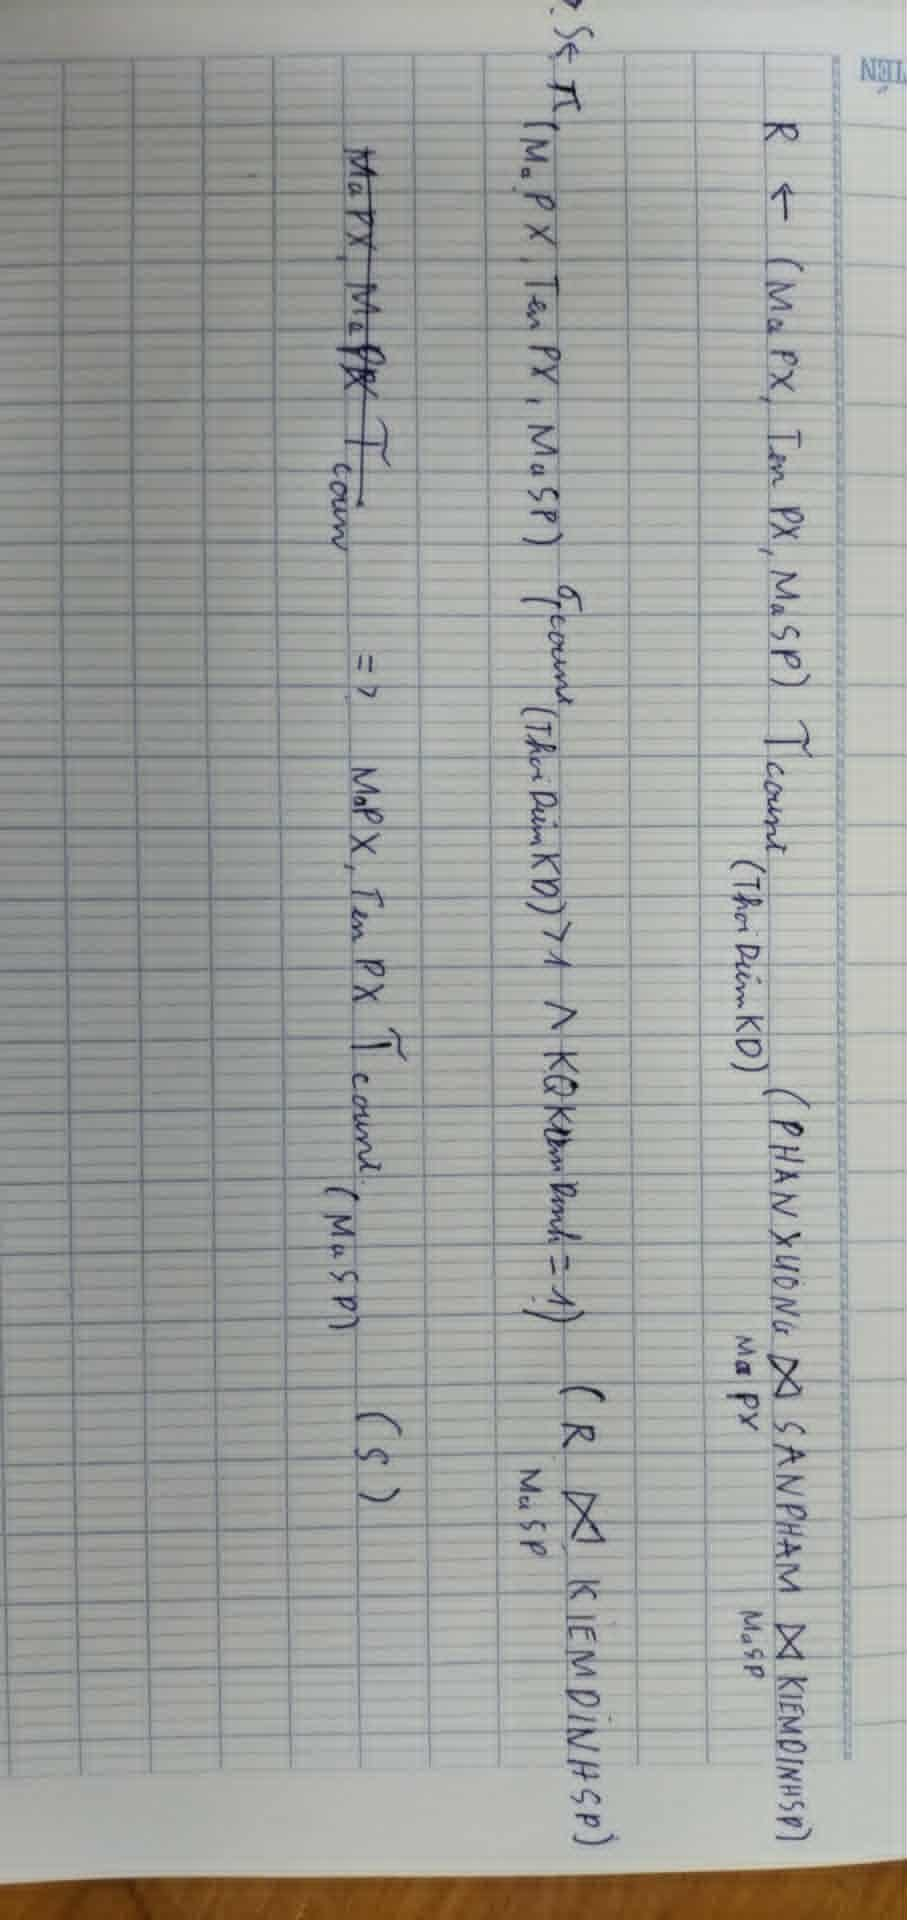 TÊN
R ← (MaPX, TenPX, MaSP) T count (ThoiDiemKD) (PHANXUONG ⋈ MaPX SANPHAM ⋈ MaSP KIEMDINHSP)
S ← π (MaPX, TenPX, MaSP) σ (count (ThoiDiemKD) > 1 ∧ KQKiemDinh = 1) (R ⋈ MaSP KIEMDINHSP)
MaPX, MaPX T coun => MaPX, TenPX T count (MaSP) (S)